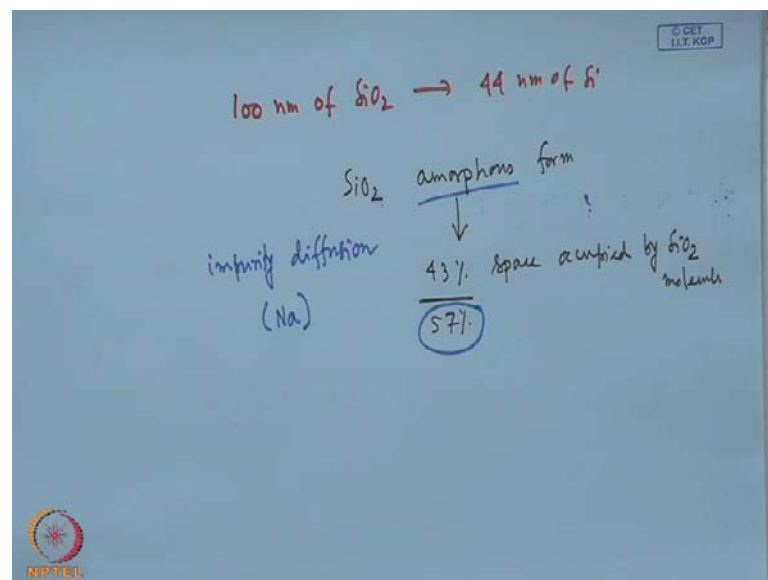 © CET
I.I.T. KGP
100 nm of SiO2 → 44 nm of Si
SiO2 amorphous form
impurity diffusion 43% space occupied by SiO2
molecule
(Na) 57%
NPTEL